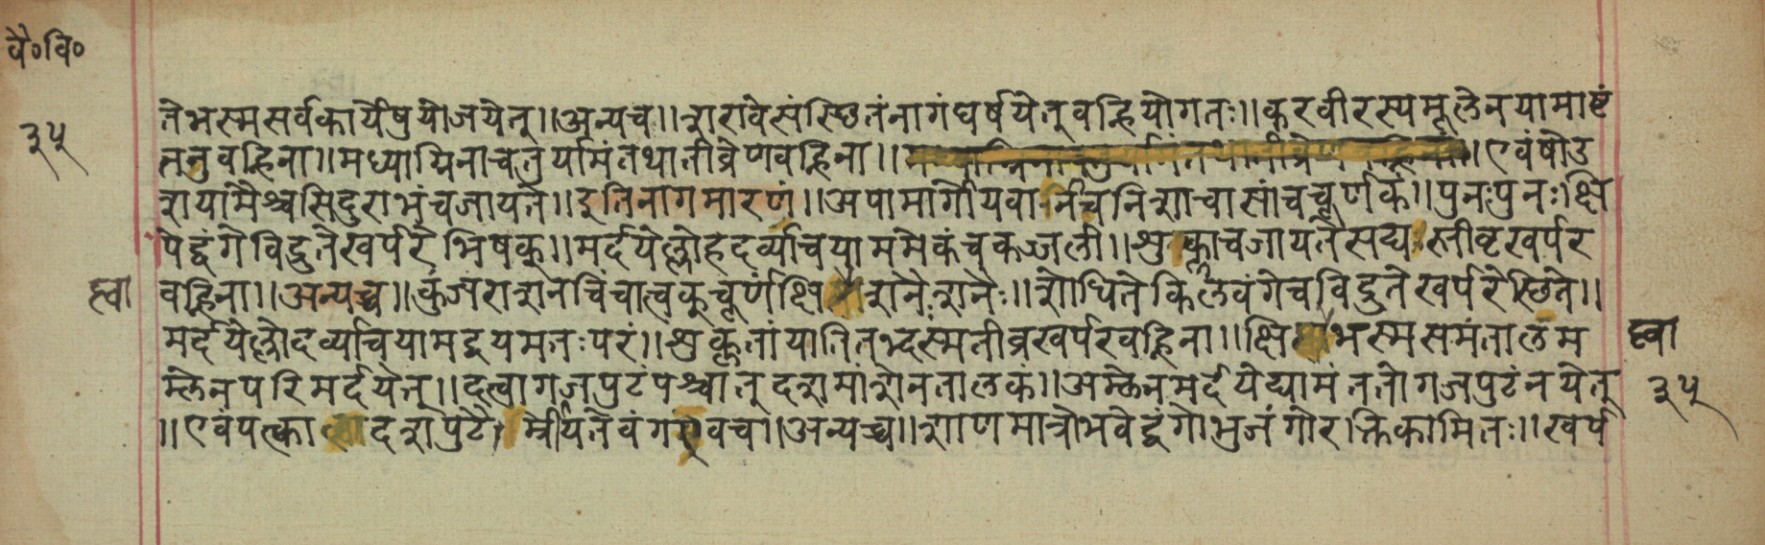 वै०वि०
३५
ते भस्म सर्वकार्येषु योजयेत् ॥ अन्यच्च ॥ शरावे संस्थितं नागं घर्षयेत् वह्नियोगतः ॥ करवीरस्य मूलेन यामाष्टं
तनु वह्निना ॥ मध्याग्निना चतुर्यामं तथा तीव्रेण वह्निना ॥ एवं षोड
शयामैश्च सिंदुराभं च जायते ॥ इति नागमारणं ॥ अपामार्गो यवानी च निशा चासां च चूर्णकं ॥ पुनः पुनः क्षि
पेद्वंगे विद्रुते खर्परे भिषक् ॥ मर्दयेल्लोहदर्व्या च याममेकं च कज्जली ॥ शुक्ला च जायते सद्य स्तीव्र खर्पर
वह्निना ॥ अन्यच्च ॥ कुंजराशन चिंचात्वक् चूर्णं क्षि शनैः शनैः ॥ शोधिते किल वंगे च विद्रुते खर्परे स्थिते ॥
त्वा
मर्दयेल्लौदर्व्या च यामद्वयमतः परं ॥ शुक्लतां याति तद्भस्म तीव्र खर्परवह्निना ॥ क्षि भस्म समं तालम
त्वा
म्लेन परिमर्दयेत् ॥ दत्वा गजपुटं पश्चात् दशमांशेन तालकं ॥ अम्लेन मर्दयेद्यामं ततो गजपुटं नयेत्
३५
॥ एवं पत्का दशपुटै म्रीयते वंग वच ॥ अन्यच्च ॥ शाणमात्रो भवेद्वंगो भुजंगो रक्तिकामितः ॥ खर्प